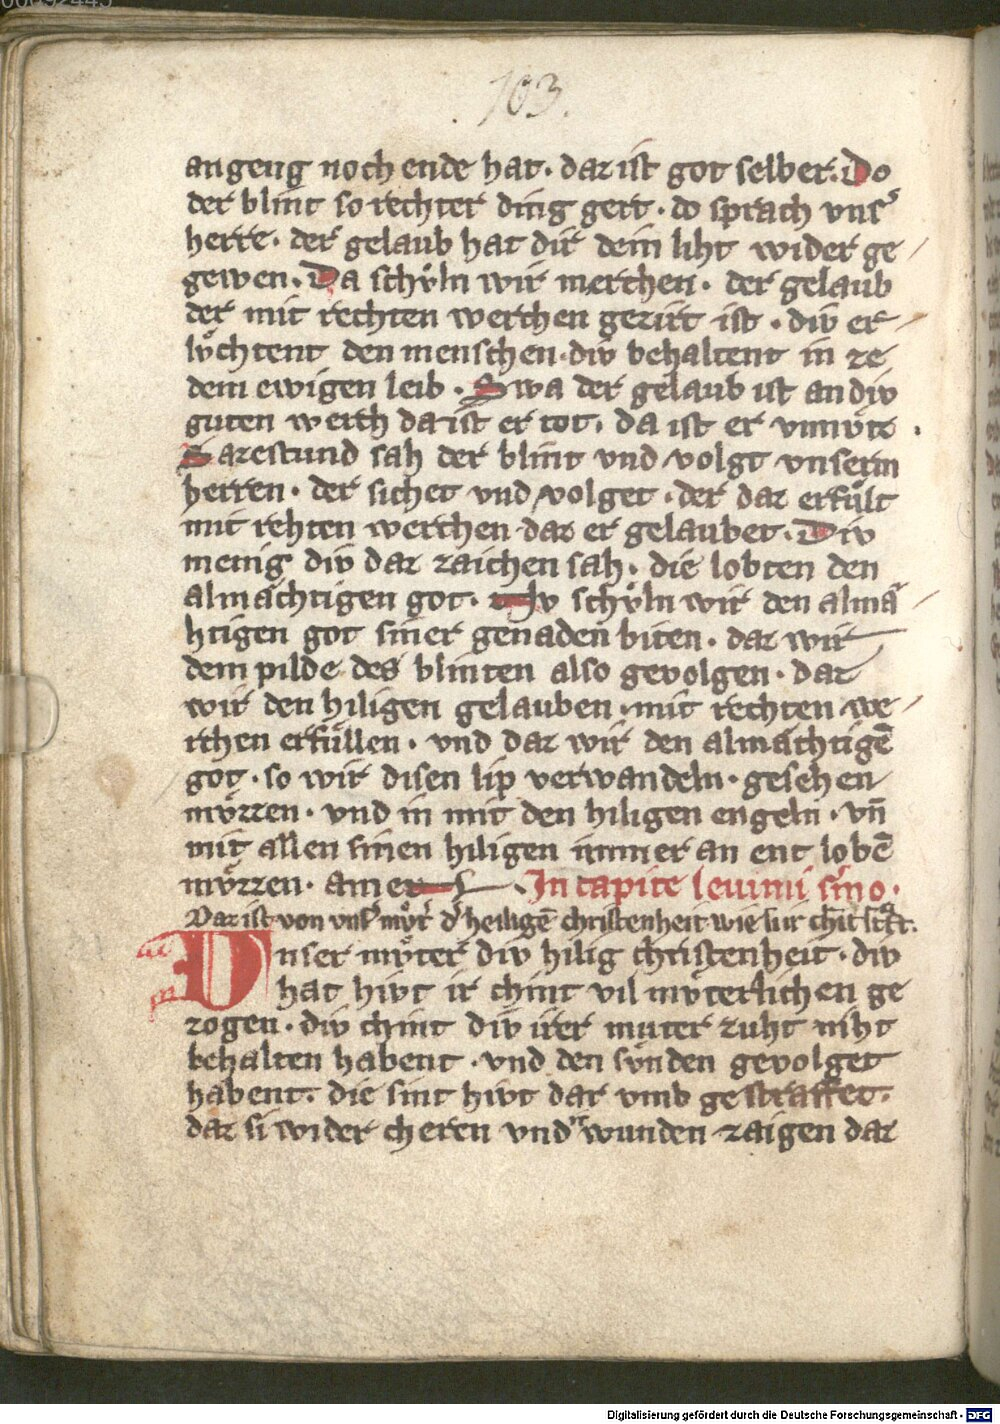 103.
angeng noch ende hat. daz ist got selber. Do
der blint so rechter ding gert. do sprach vnsʼ
herre. der gelaub hat dir dein liht wider ge
gewen. Da schvͤln wir merchen. der gelaub
der mit rechten werchen geziirt ist. div er
lvͤchtent den menschen. div behaltent in ze
dem ewigen leib. Swa der gelaub ist an div
guten werch da ist er tot. da ist er vnnvͤtz.
Sazestund sah der blint vnd volgt vnserm
herren. der sichet vnd volget. der daz erfuͤlt
mit rehten werchen daz er gelaubet. Div
menig div daz zaichen sah. die lobten den
almaͤchtigen got. Nv schvͤln wir den almaͤ
htigen got siner genaden biten. daz wir
dem pilde des blinten also gevolgen. daz
wir den hiligen gelauben. mit rechten we
rchen erfuͤllen. vnd daz wir den almaͤchtigē
got. so wir disen lip verwandeln. gesehen
mvͤzzen. vnd in mit den hiligen engeln. vn̄
mit allen sinen hiligen immer an ent lobē
mvͤzzen. amen. In capite Ieiunii s̄mo.
Daz ist von vnsʼ mvͤtʼ dʼ heiligē christenheit wie sie
Unser mvͤter div hilig christenheit. div
hat hivt ir chint vil mvͤterlichen ge
zogen. div chint div irer muter zuht niht
behalten habent. vnd den svͤnden gevolget
habent. die sint hivt dar vmb gestraffet.
daz si wider cheren vnd ir wunden zaigen daz
Digitalisierung gefördert durch die Deutsche Forschungsgemeinschaft - DFG